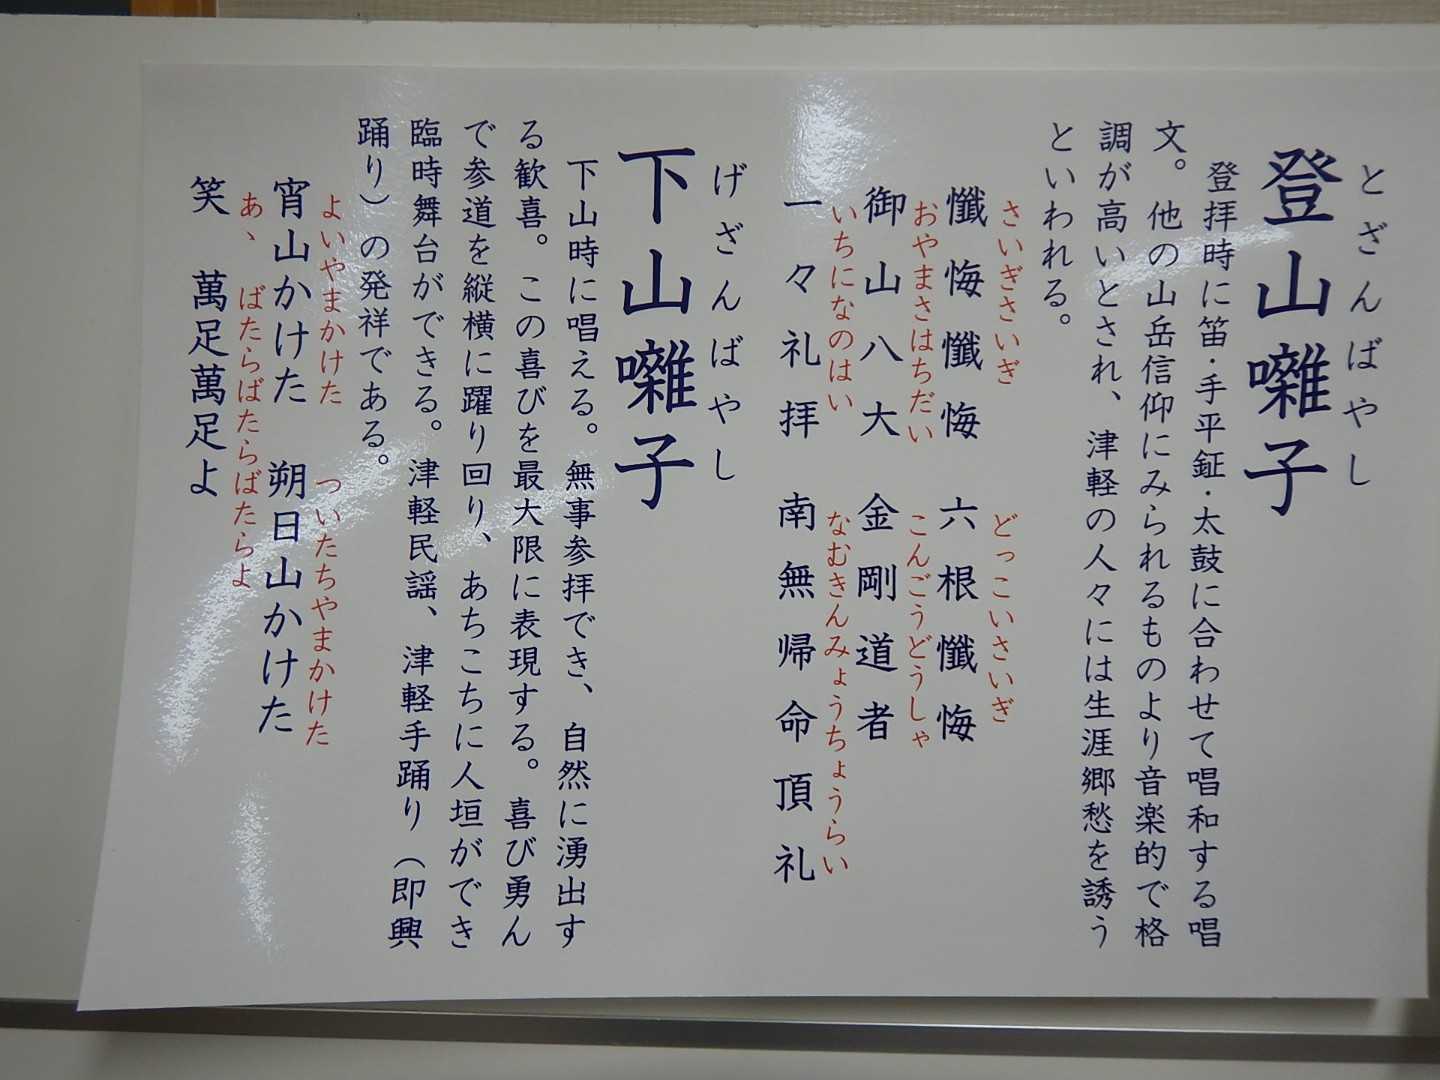 とざんばやし
登山囃子
登拝時に笛・手平鉦・太鼓に合わせて唱和する唱
文。他の山岳信仰にみられるものより音楽的で格
調が高いとされ、津軽の人々には生涯郷愁を誘う
といわれる。
さいぎさいぎ　どっこいさいぎ
懺悔懺悔　六根懺悔
おやまさはちだい　こんごうどうしゃ
御山八大　金剛道者
いちにになのはい　なむきんみょうちょうらい
一々礼拝　南無帰命頂礼
げざんばやし
下山囃子
下山時に唱える。無事参拝でき、自然に湧出す
る歓喜。この喜びを最大限に表現する。喜び勇ん
で参道を縦横に躍り回り、あちこちに人垣ができ
臨時舞台ができる。津軽民謡、津軽手踊り（即興
踊り）の発祥である。
よいやまかけた　ついたちやまかけた
宵山かけた　朔日山かけた
あ、ばたらばたらばたらよ
笑　萬足萬足よ